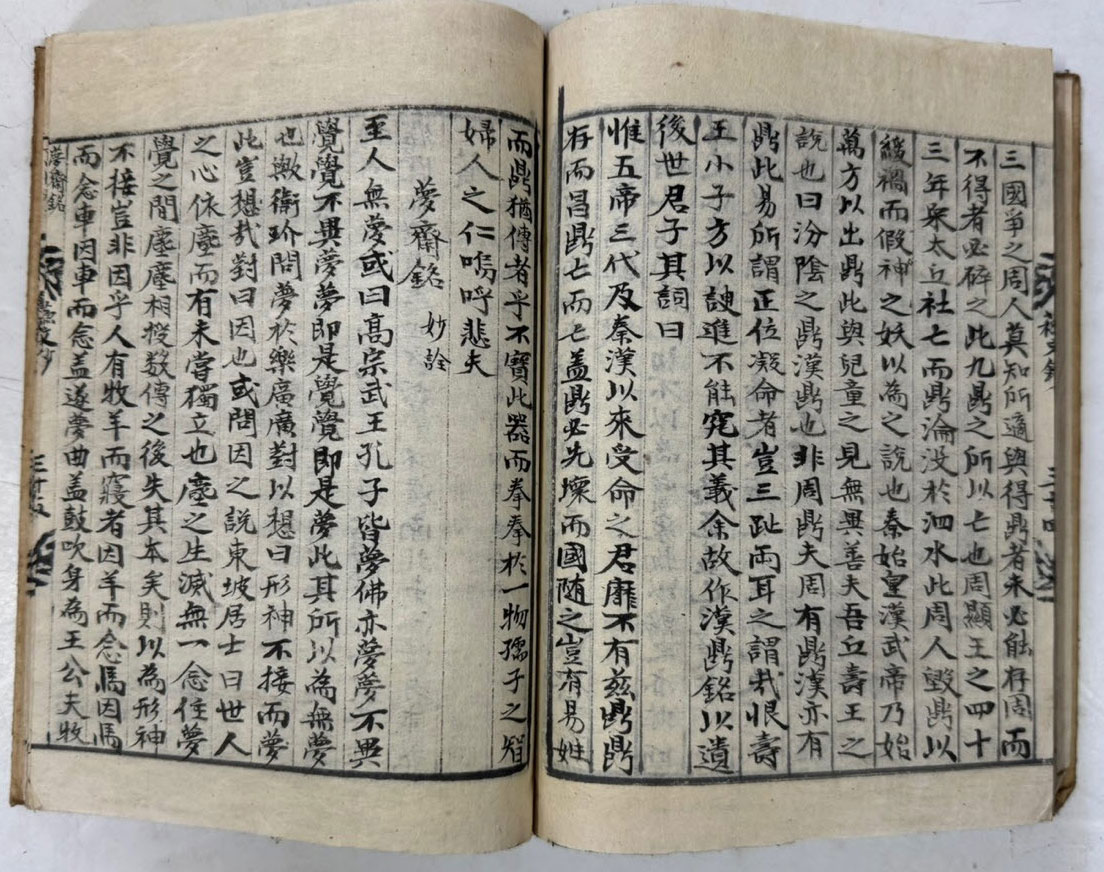 三國爭之周人莫知所適與得鼎者未必能存周而
不得者必碎之此九鼎之所以亡也周顯王之四十
三年宋太丘社亡而鼎淪没於泗水此周人毀鼎以
緩禍而假神之妖以為之說也秦始皇漢武帝乃始
萬方以出鼎此與兒童之見無異善夫吾丘壽王之
說也曰汾陰之鼎漢鼎也非周鼎夫周有鼎漢亦有
鼎此易所謂正位凝命者豈三趾両耳之謂哉恨壽
王小子方以諛進不能究其義余故作漢鼎銘以遺
後世君子其詞曰
惟五帝三代及秦漢以來受命之君靡不有兹鼎鼎
存而昌鼎亡而亡盖鼎必先壞而國随之豈有易姓
而鼎猶傳者乎不寶此器而拳拳於一物孺子之智
婦人之仁嗚呼悲夫
夢齋銘 妙詮
至人無夢或曰高宗武王孔子皆夢佛亦夢夢不異
覺覺不異夢夢即是覺覺即是夢此其所以為無夢
也歟衛玠問夢於樂廣廣對以想曰形神不接而夢
此豈想哉對曰因也或問因之說東坡居士曰世人
之心依塵而有未嘗獨立也塵之生滅無一念住夢
覺之間塵塵相授数傳之後失其本矣則以為形神
不接豈非因乎人有牧羊而寢者因羊而念馬因馬
而念車因車而念盖遂夢曲盖鼓吹身為王公夫牧
夢齋銘